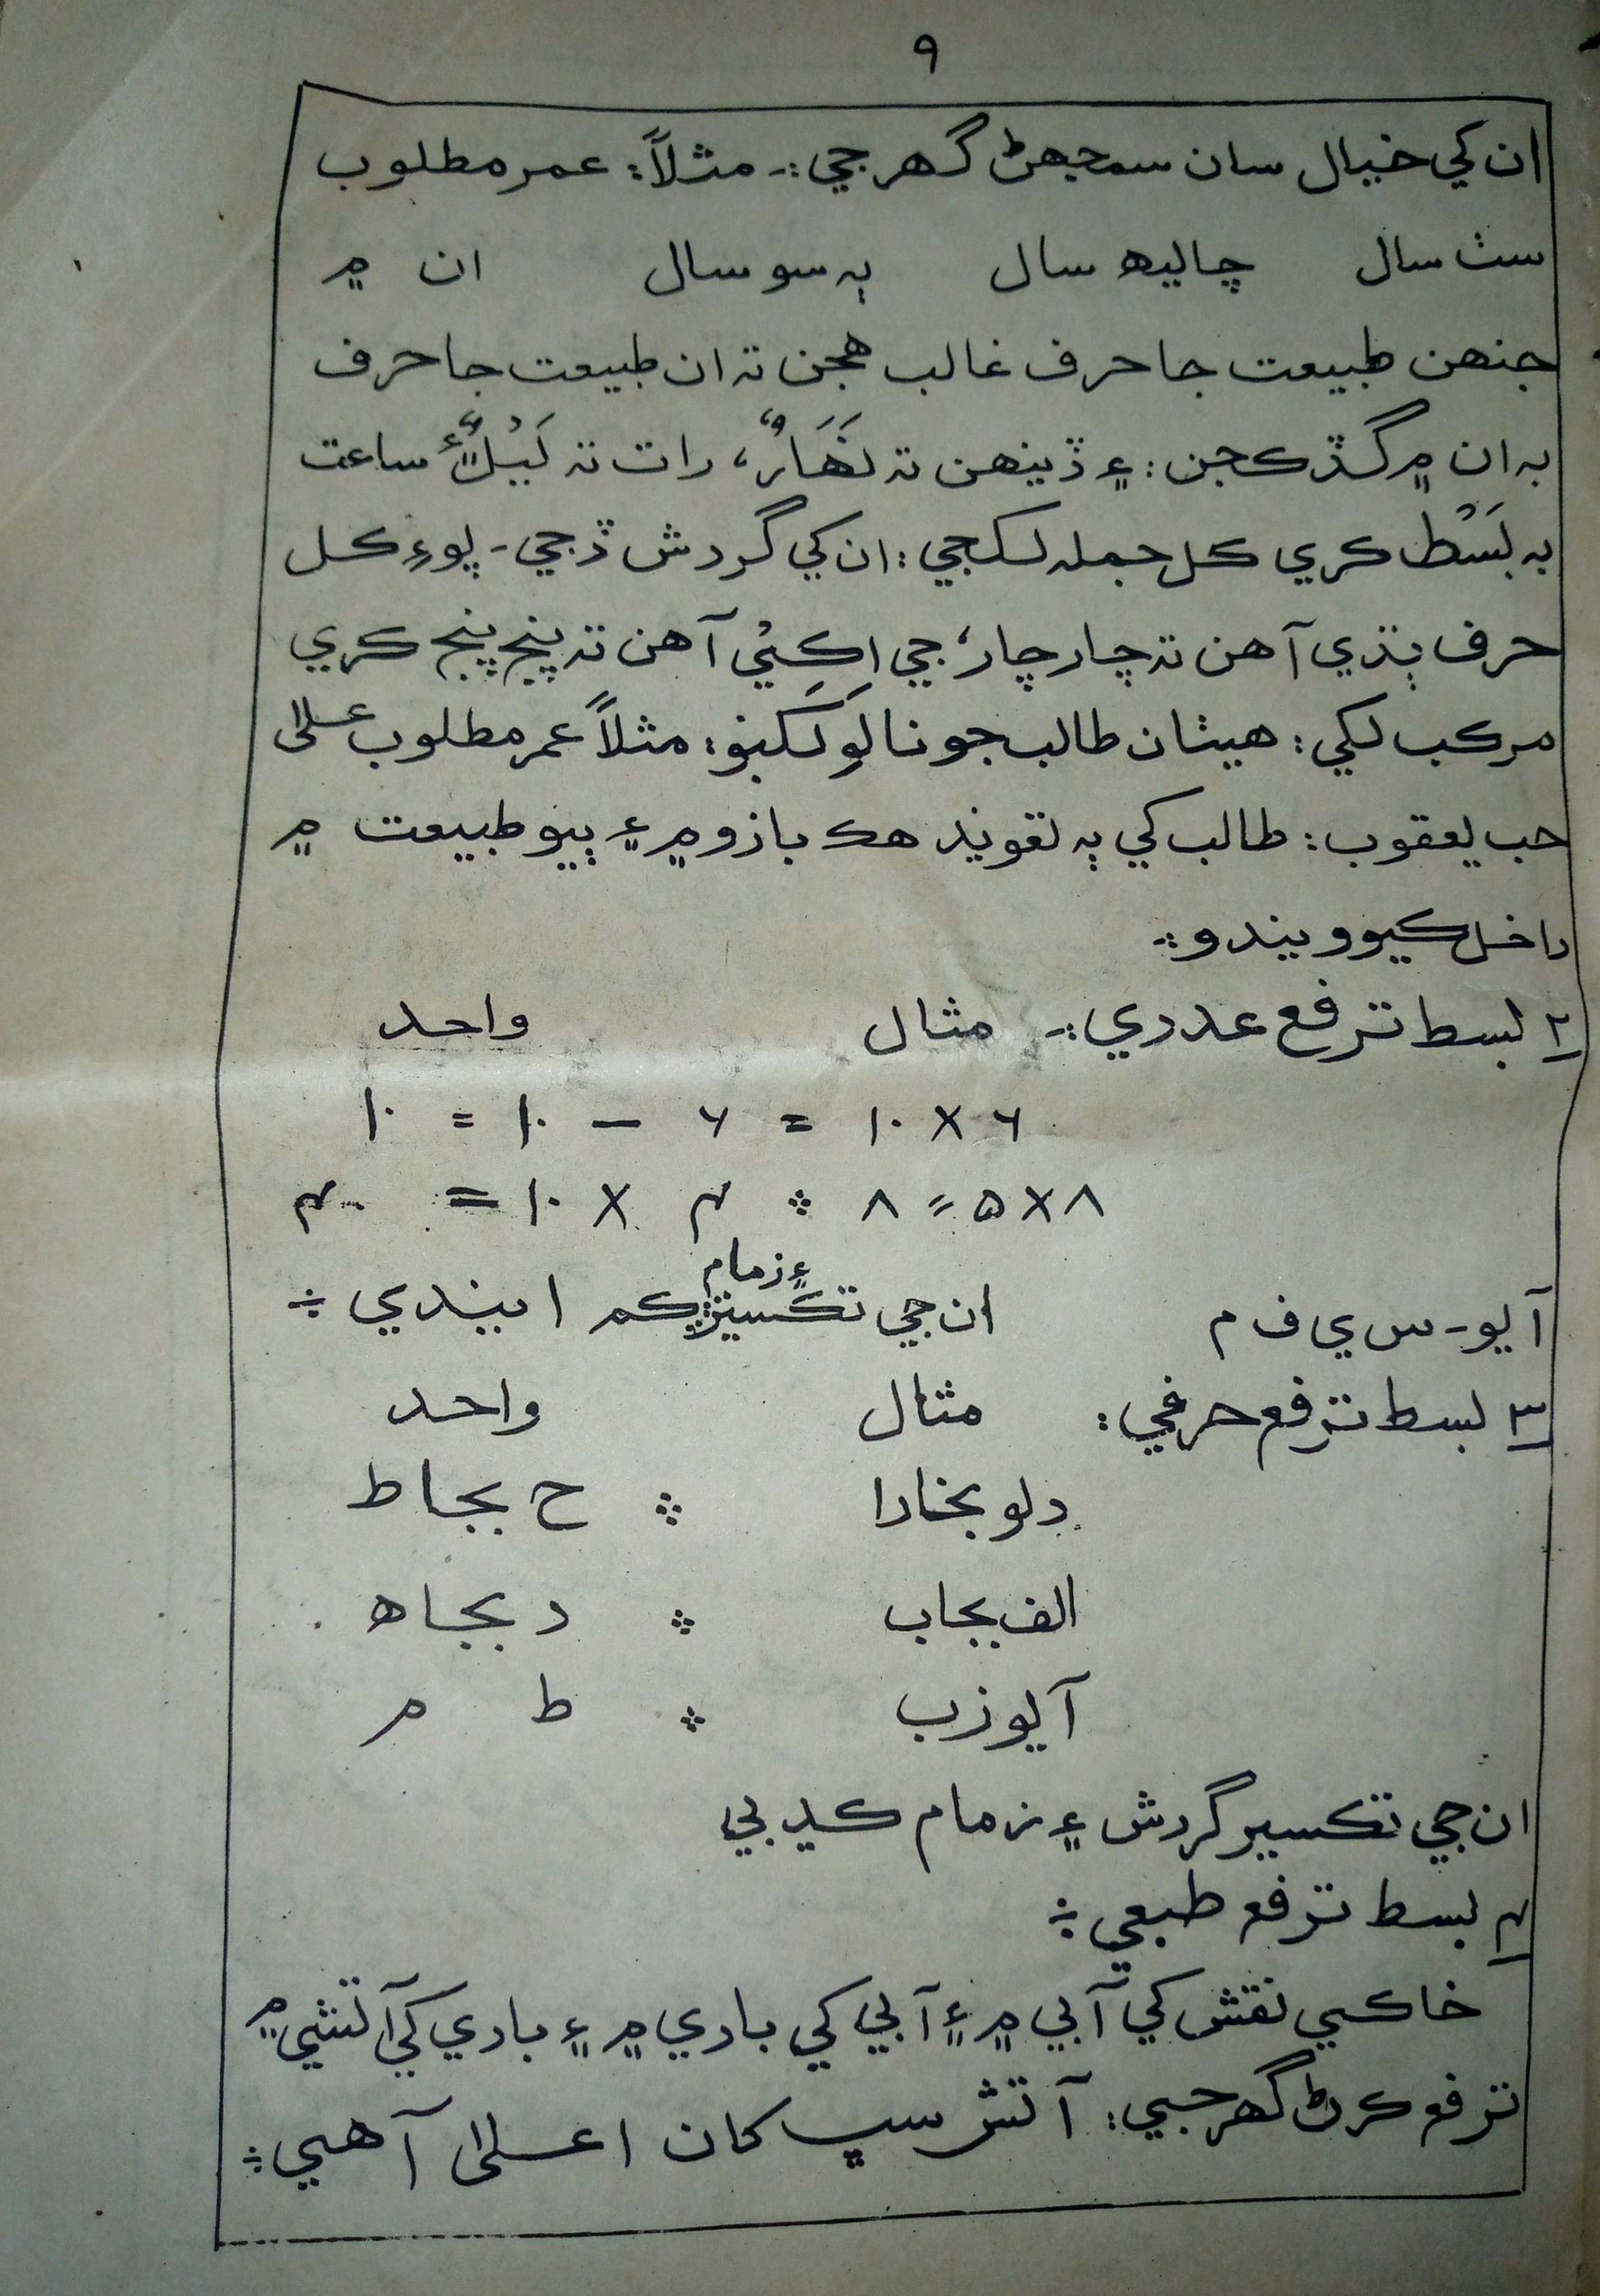 ۹
ان کي خيال سان سمجهڻ گهرجي :۔ مثلاً: عمر مطلوب
سٺ سال چاليھ سال ٻه سو سال ان ۾
جنهن طبيعت جا حرف غالب هجن ته ان طبيعت جا حرف
به ان ۾ گڏ ڪجن : ۽ ڏينهن ته نَهَارٌ، رات ته لَيْلٌ ۽ ساعت
به بَسْط ڪري ڪل جمله لکجي : ان کي گردش ڏجي - پوءِ ڪل
حرف ٻڌي آهن ته چار چار، جي اِڪِيُ آهن ته پنج پنج ڪري
مرڪب لکي : هيٺان طالب جو نالو لکبو : مثلاً عمر مطلوب علىٰ
حب يعقوب : طالب کي ٻه تعويذ هڪ بازو ۾ ۽ ٻيو طبيعت ۾
داخل ڪيو ويندو ۔:
۲ بسط ترفع عددي :۔ مثال واحد
۶ × ۱۰ = ۶ — ۱۰ = ۱۰
۸ × ۵ = ۸ ؞ ۴ × ۱۰ = ۴۰
آ يو - س ي ف م ان جي تڪسير ۽ زمام ڪم ايندي ÷
۳ بسط ترفع حرفي : مثال واحد
د لو بخارا ؞ ح بجا ط
الف بجاب ؞ د بجا ھ
آ يو زب ؞ ط م
ان جي تڪسير گردش ۽ زمام ڪڍبي
۴ بسط ترفع طبعي ÷
خاڪي نقش کي آبي ۾ ۽ آبي کي بادي ۾ ۽ بادي کي آتشي ۾
ترفع ڪرڻ گهرجي : آتش سڀ کان اعلىٰ آهي ÷